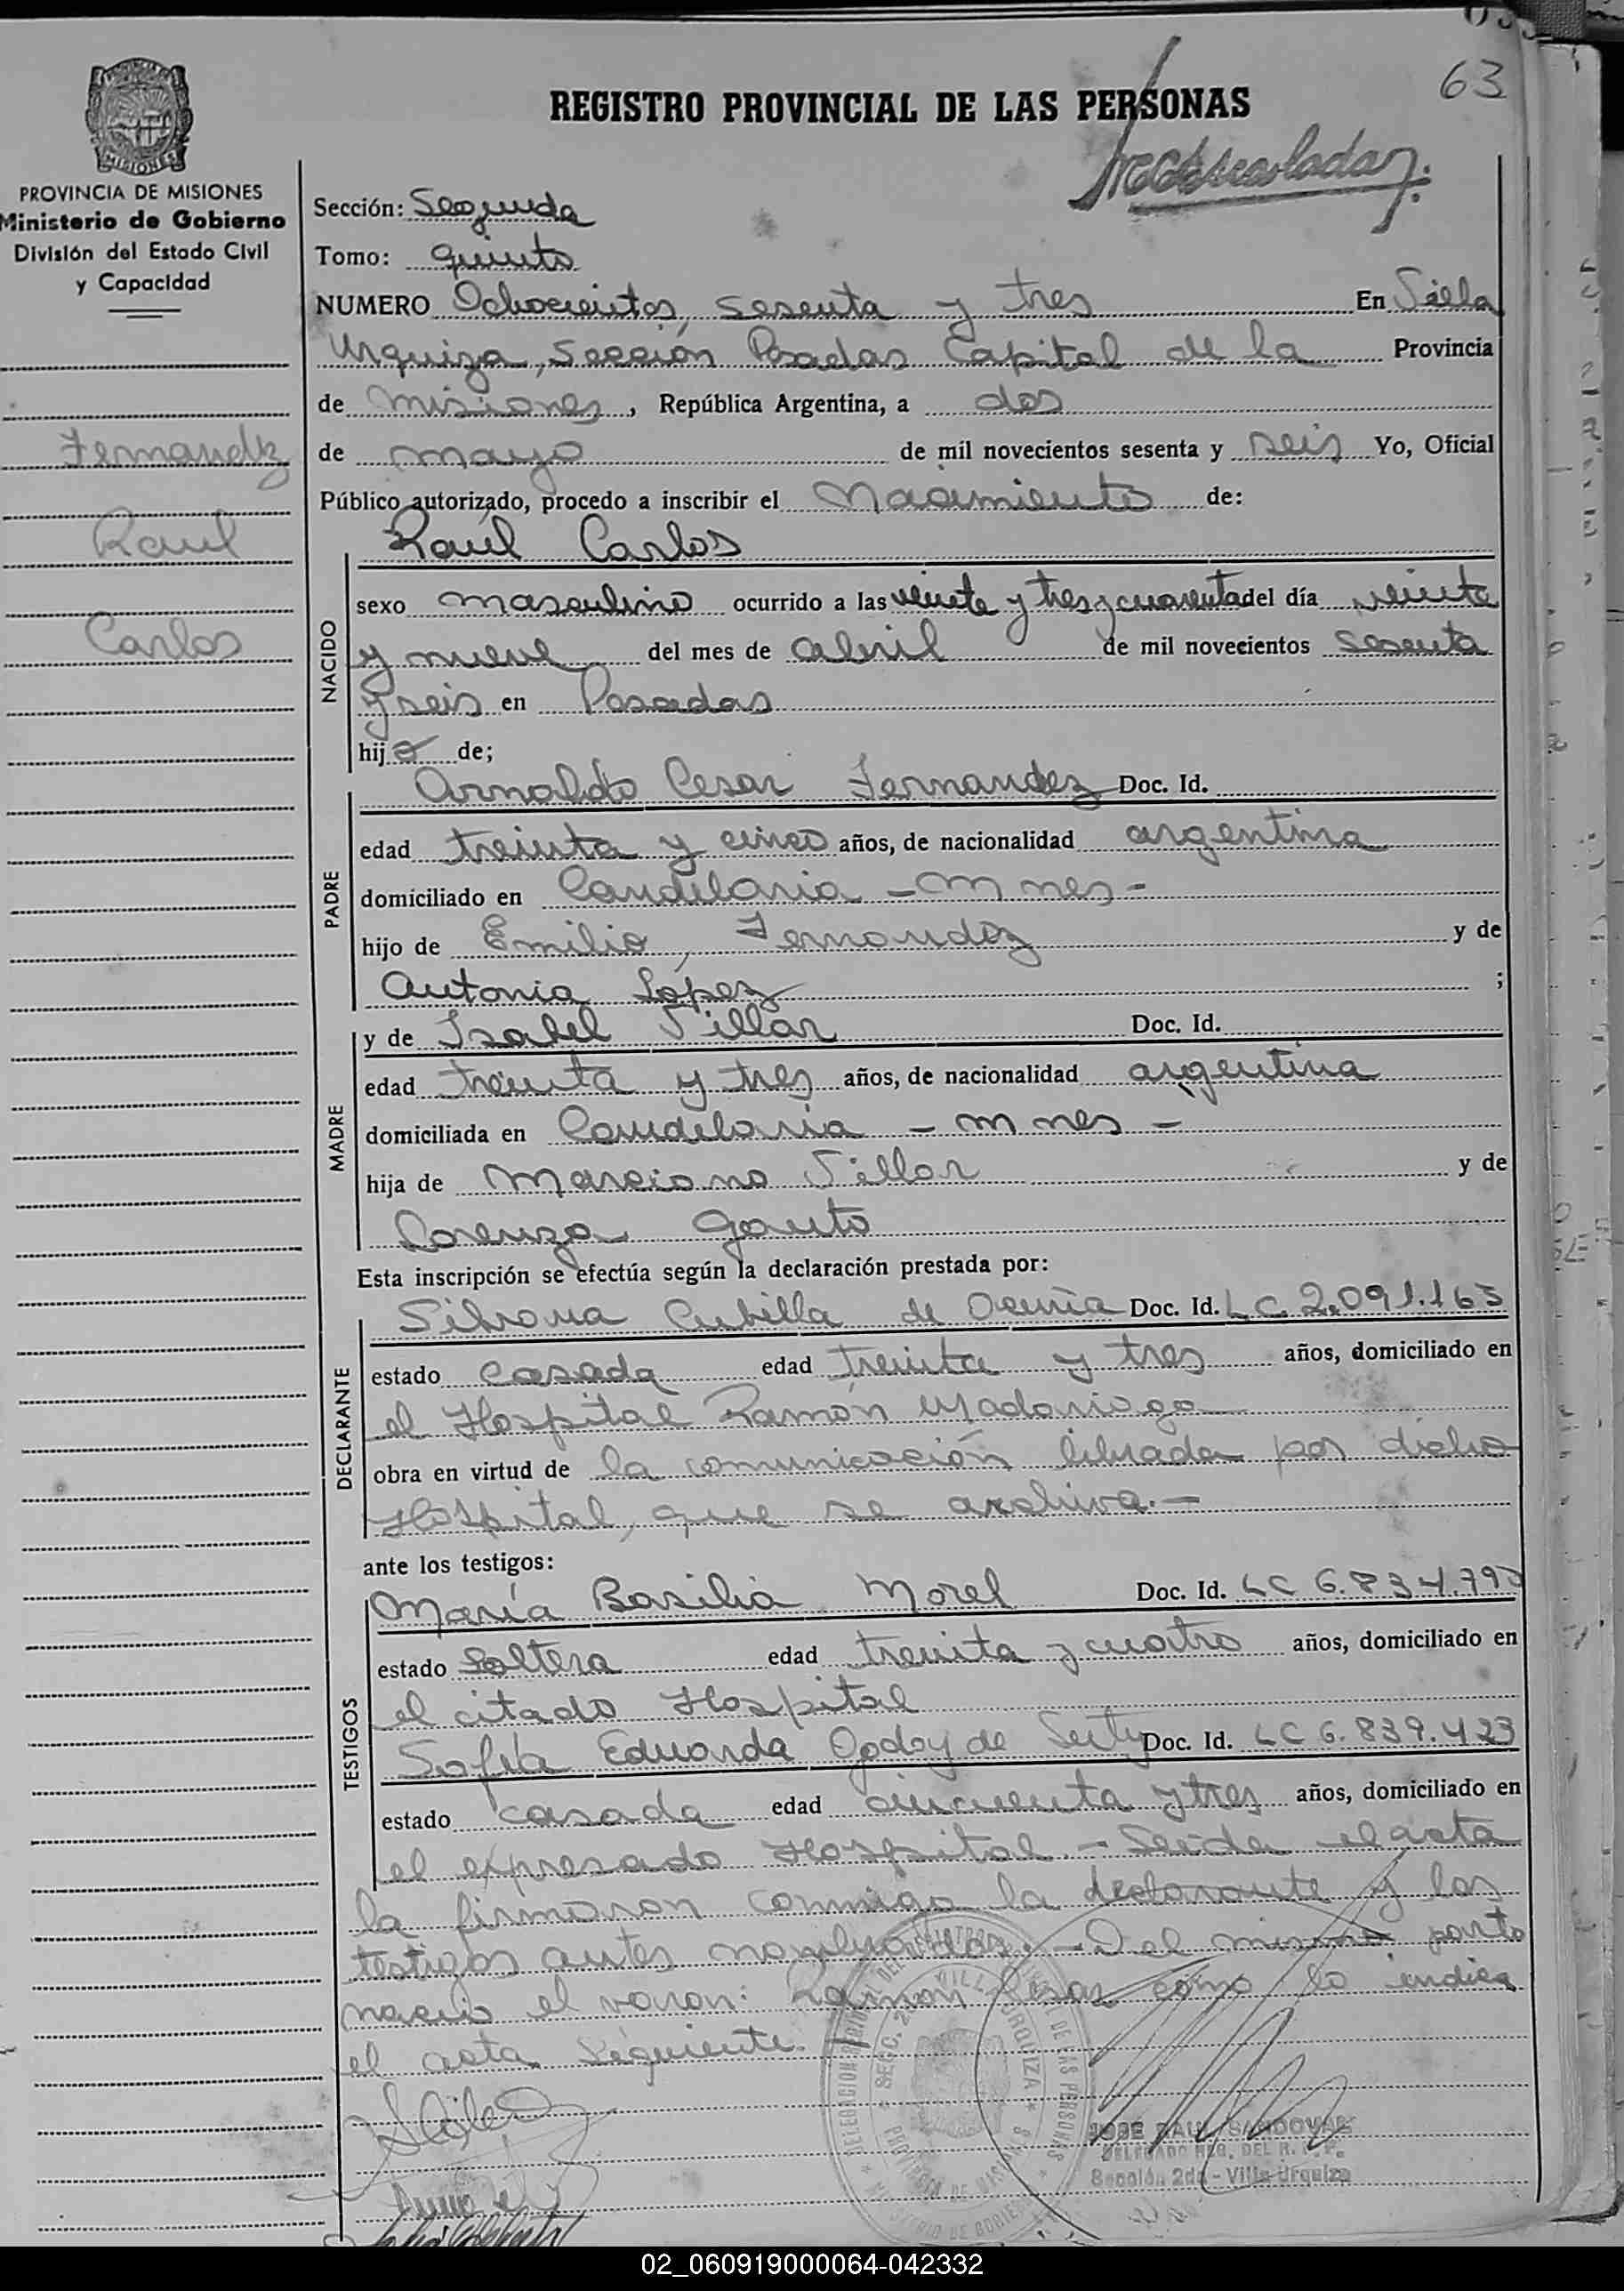 63
REGISTRO PROVINCIAL DE LAS PERSONAS
MISIONES
PROVINCIA DE MISIONES
Ministerio de Gobierno
División del Estado Civil
y Capacidad
Fernandez
Raul
Carlos
Sección: Segunda
Tomo: quinto
NUMERO Ochocientos, sesenta y tres En Villa
Urquiza, Sección Posadas Capital de la Provincia
de misiones, República Argentina, a dos
de mayo de mil novecientos sesenta y seis Yo, Oficial
Público autorizado, procedo a inscribir el Nacimiento de:
NACIDO
Raúl Carlos
sexo masculino ocurrido a las veinte y tres y cuarenta del día veinte
y nueve del mes de abril de mil novecientos sesenta
y seis en Posadas
hijo de;
PADRE
Arnoldo Cesar Fernandez Doc. Id.
edad treinta y cinco años, de nacionalidad argentina
domiciliado en Candelaria - M nes -
hijo de Emilio, Fernandez y de
Antonia López ;
MADRE
y de Isabel Villar Doc. Id.
edad treinta y tres años, de nacionalidad argentina
domiciliada en Candelaria - M nes -
hija de Marciano Villar y de
Lorenza Gauto
Esta inscripción se efectúa según la declaración prestada por:
DECLARANTE
Silvana Cubilla de Acuña Doc. Id. LC. 2.091.163
estado casada edad treinta y tres años, domiciliado en
el Hospital Ramón Madariaga
obra en virtud de la comunicación librada por dicho
Hospital, que se archiva.-
ante los testigos:
TESTIGOS
María Basilia Morel Doc. Id. LC 6.834.790
estado soltera edad treinta y cuatro años, domiciliado en
el citado Hospital
Sofía Eduarda Godoy de Doc. Id. LC 6.839.423
estado casada edad cincuenta y tres años, domiciliado en
el expresado Hospital - Leída el acta
la firmaron conmigo la declarante y los
testigos antes nombrados. - Del mismo parto
nació el varon: Ramón Cesar como lo indica
el acta siguiente.
JOSE RAUL SANDOVAL
Sección 2da - Villa Urquiza
02_060919000064-042332